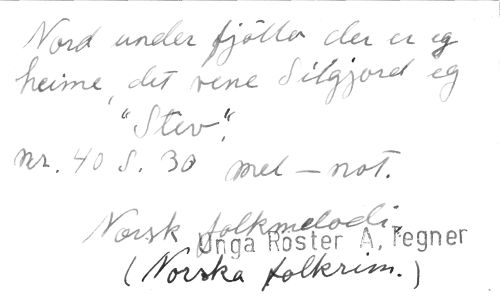 Nord under fjölla der er eg
heime, det vene Silgjord eg
"Stev".
nr. 40 S. 30 mel-not.
Norsk folkmelodi.
Unga Röster A, Tegner
(Norska folkrim.)